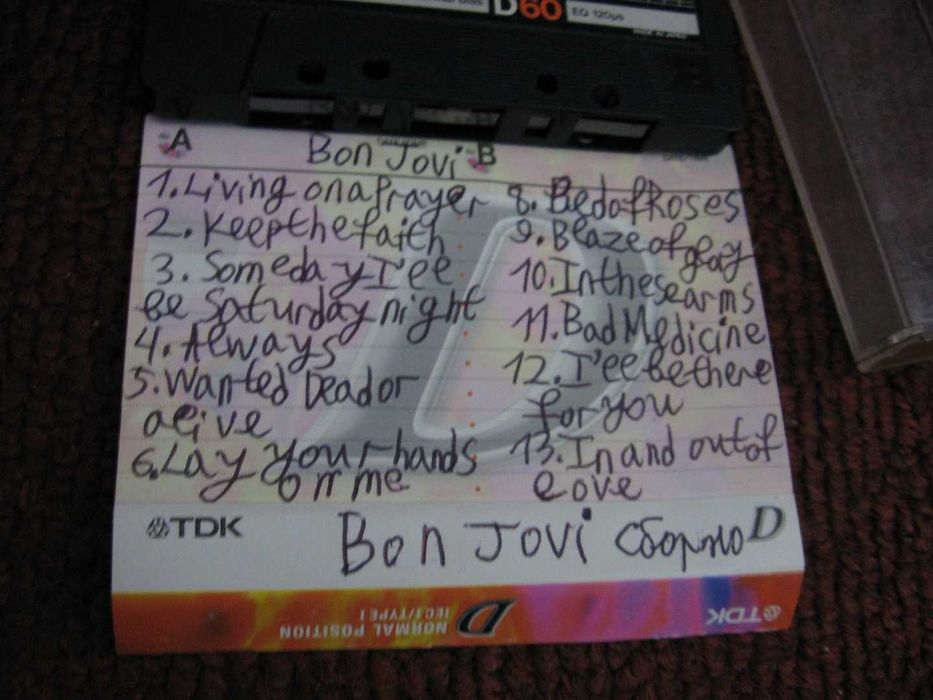 D60 EQ 120µs
MADE IN JAPAN
A B
Bon Jovi
1. Living on a Prayer
2. Keep the faith
3. Someday I'll
be Saturday night
4. Always
5. Wanted Dead or
alive
6. Lay your hands
on me
8. Bed of Roses
9. Blaze of glory
10. In these arms
11. Bad Medicine
12. I'll be there
for you
13. In and out of
love
TDK
Bon Jovi сборно D
TDK D NORMAL POSITION
IEC I/TYPE I